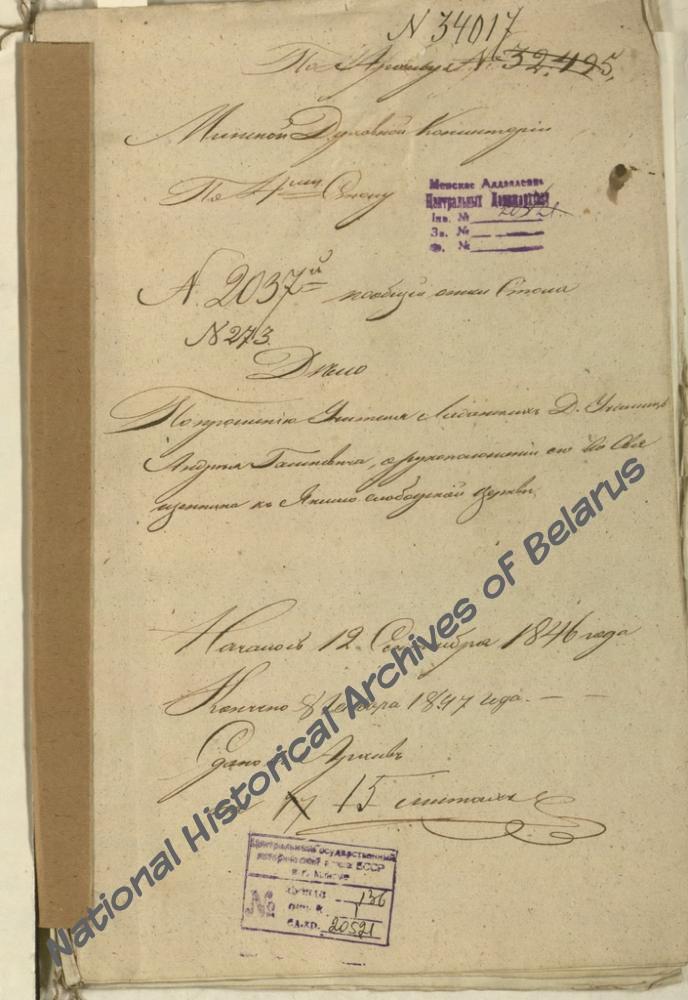 N 34017
По Архиву № 32.495.
Минской Духовной Консисторіи
По 4му Столу
Менскае Аддзяленне
Центральных
Інв. № 20521.
Зв. №
Ф. №
N. 2037й по общей описи Стола
N 273.
Дѣло
По прошенію Учителя Ляданскихъ Д. Училищъ
Андрея , о рукоположеніи его во Свя
щенника къ слободской церкви
Началось 12 Сентября 1846 года
Кончено 8 1847 года. — —
Сдано въ Архивъ
15 листахъ
Центральный государственный
исторический архив БССР
в г. Минске
№
фонд 136
опись 1
ед.хр. 20521
National Historical Archives of Belarus